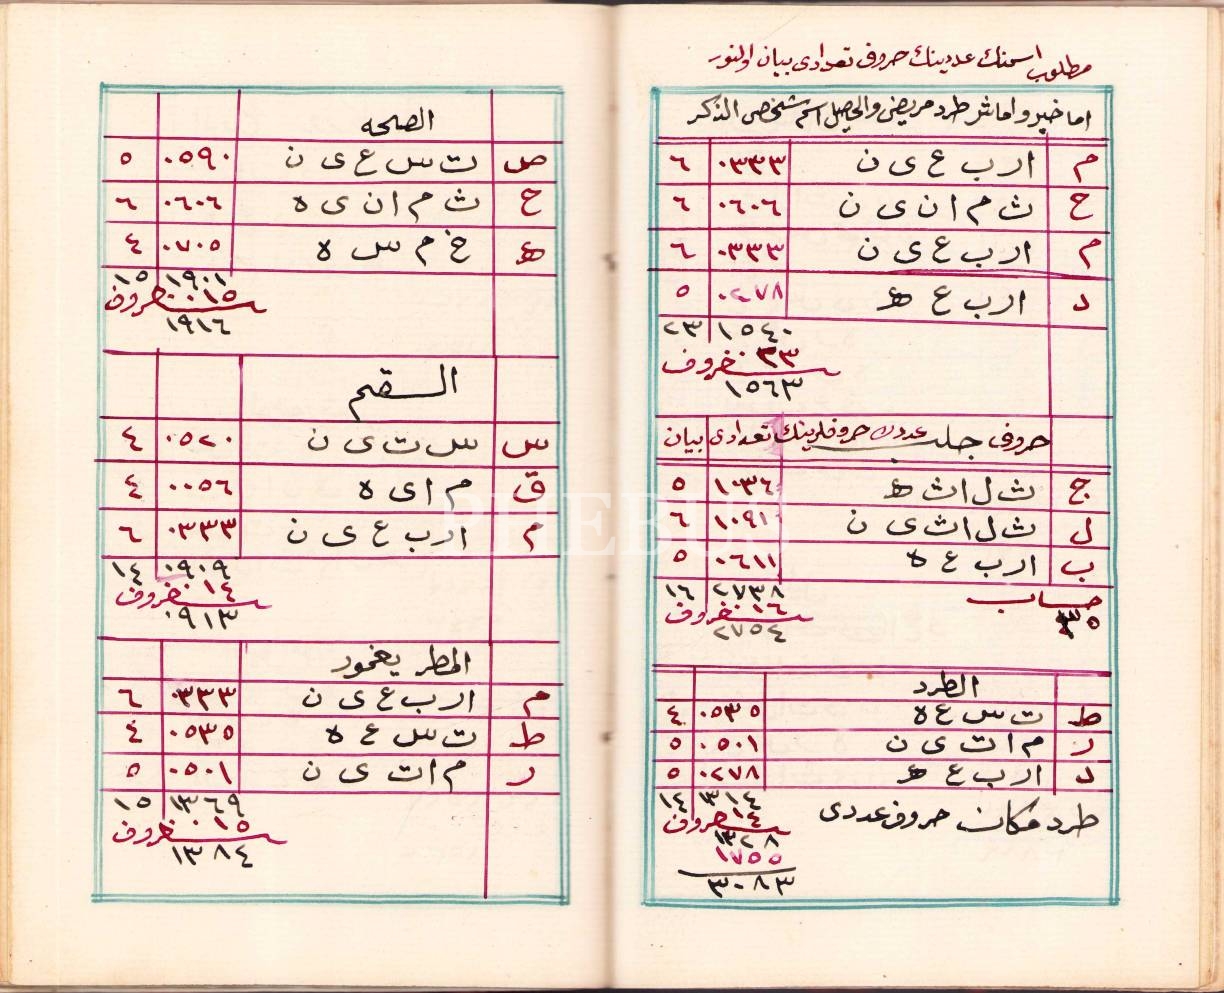 مطلوب اسمنك عددينك حروف تعدادى بيان اولنور
اما خير و اما شر طرد مريض والحاصل اسم شخص الذكر
م ا ر ب ع ى ن ٠٣٣٣ ٦
ح ث م ا ن ى ن ٠٦٠٦ ٦
م ا ر ب ع ى ن ٠٣٣٣ ٦
د ا ر ب ع ه ٠٢٧٨ ٥
١٥٤٠ ٢٣
٠٣٣ حروف
١٥٦٣
حروف جلب عددك حروفلرينك تعدادى بيان
ج ث ل ا ث ه ١٠٣٦ ٥
ل ث ل ا ث ى ن ١٠٩١ ٦
ب ا ر ب ع ه ٠٦١١ ٥
حساب ٢٧٣٨ ١٦
٠١٦ حروف
٢٧٥٤
الطرد
ط ت س ع ه ٠٥٣٥ ٤
ر م ا ت ى ن ٠٥٠١ ٥
د ا ر ب ع ه ٠٢٧٨ ٥
١٣١٤ ١٤
طرد مكان حروف عددى ١٤ حروف
١٣٢٨
١٧٥٥
٣٠٨٣
الصحه
ص ت س ع ى ن ٠٥٩٠ ٥
ح ث م ا ن ى ه ٠٦٠٦ ٦
ه خ م س ه ٠٧٠٥ ٤
١٩٠١ ١٥
٠٠١٥ حروف
١٩١٦
السقم
س س ت ى ن ٠٥٢٠ ٤
ق م ا ى ه ٠٠٥٦ ٤
م ا ر ب ع ى ن ٠٣٣٣ ٦
٠٩٠٩ ١٤
٠١٤ حروف
٠٩١٣
المطر يغمور
م ا ر ب ع ى ن ٠٣٣٣ ٦
ط ت س ع ه ٠٥٣٥ ٤
ر م ا ت ى ن ٠٥٠١ ٥
١٣٦٩ ١٥
٠١٥ حروف
١٣٨٤
PHEBUS